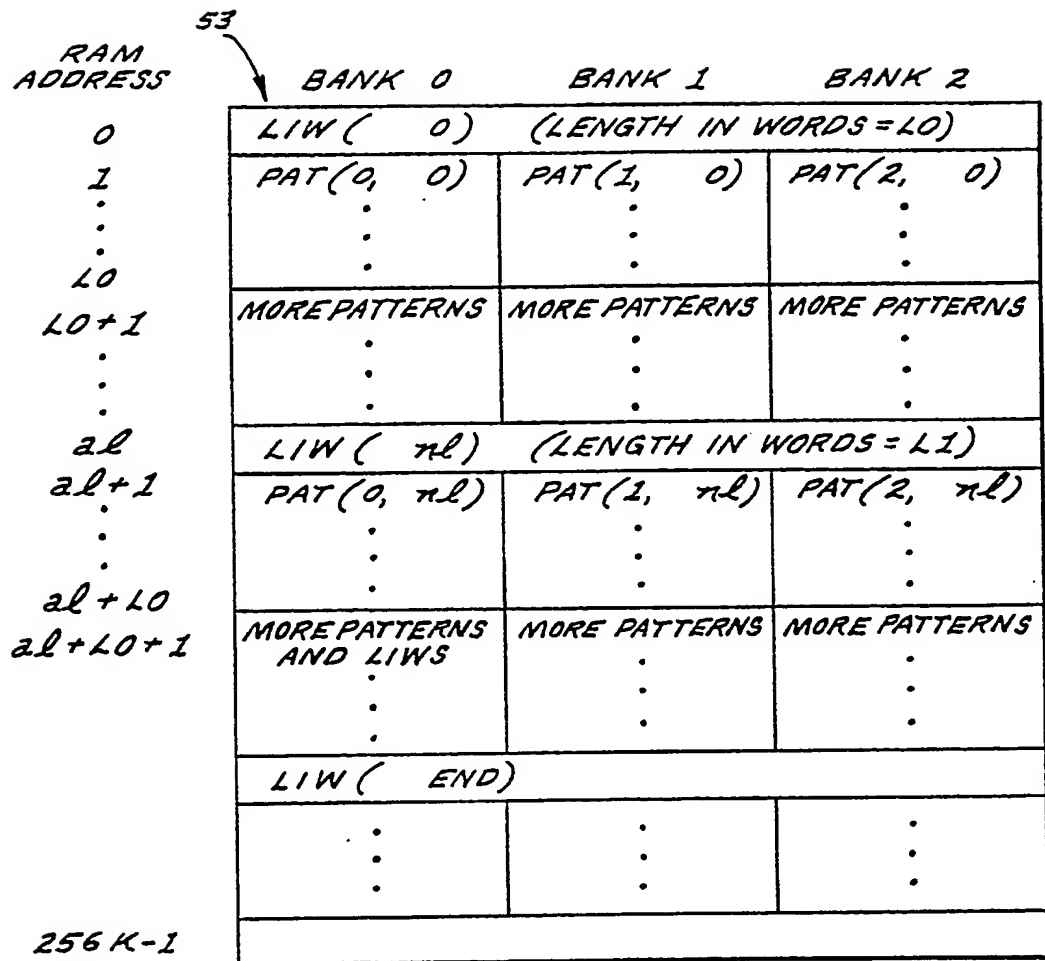 53
RAM ADDRESS BANK 0 BANK 1 BANK 2
0 LIW( 0) (LENGTH IN WORDS=L0)
1 PAT(0, 0) PAT(1, 0) PAT(2, 0)
L0
L0+1 MORE PATTERNS MORE PATTERNS MORE PATTERNS
al LIW( nl) (LENGTH IN WORDS=L1)
al+1 PAT(0, nl) PAT(1, nl) PAT(2, nl)
al+L0
al+L0+1 MORE PATTERNS MORE PATTERNS MORE PATTERNS
AND LIWS
LIW( END)
256K-1